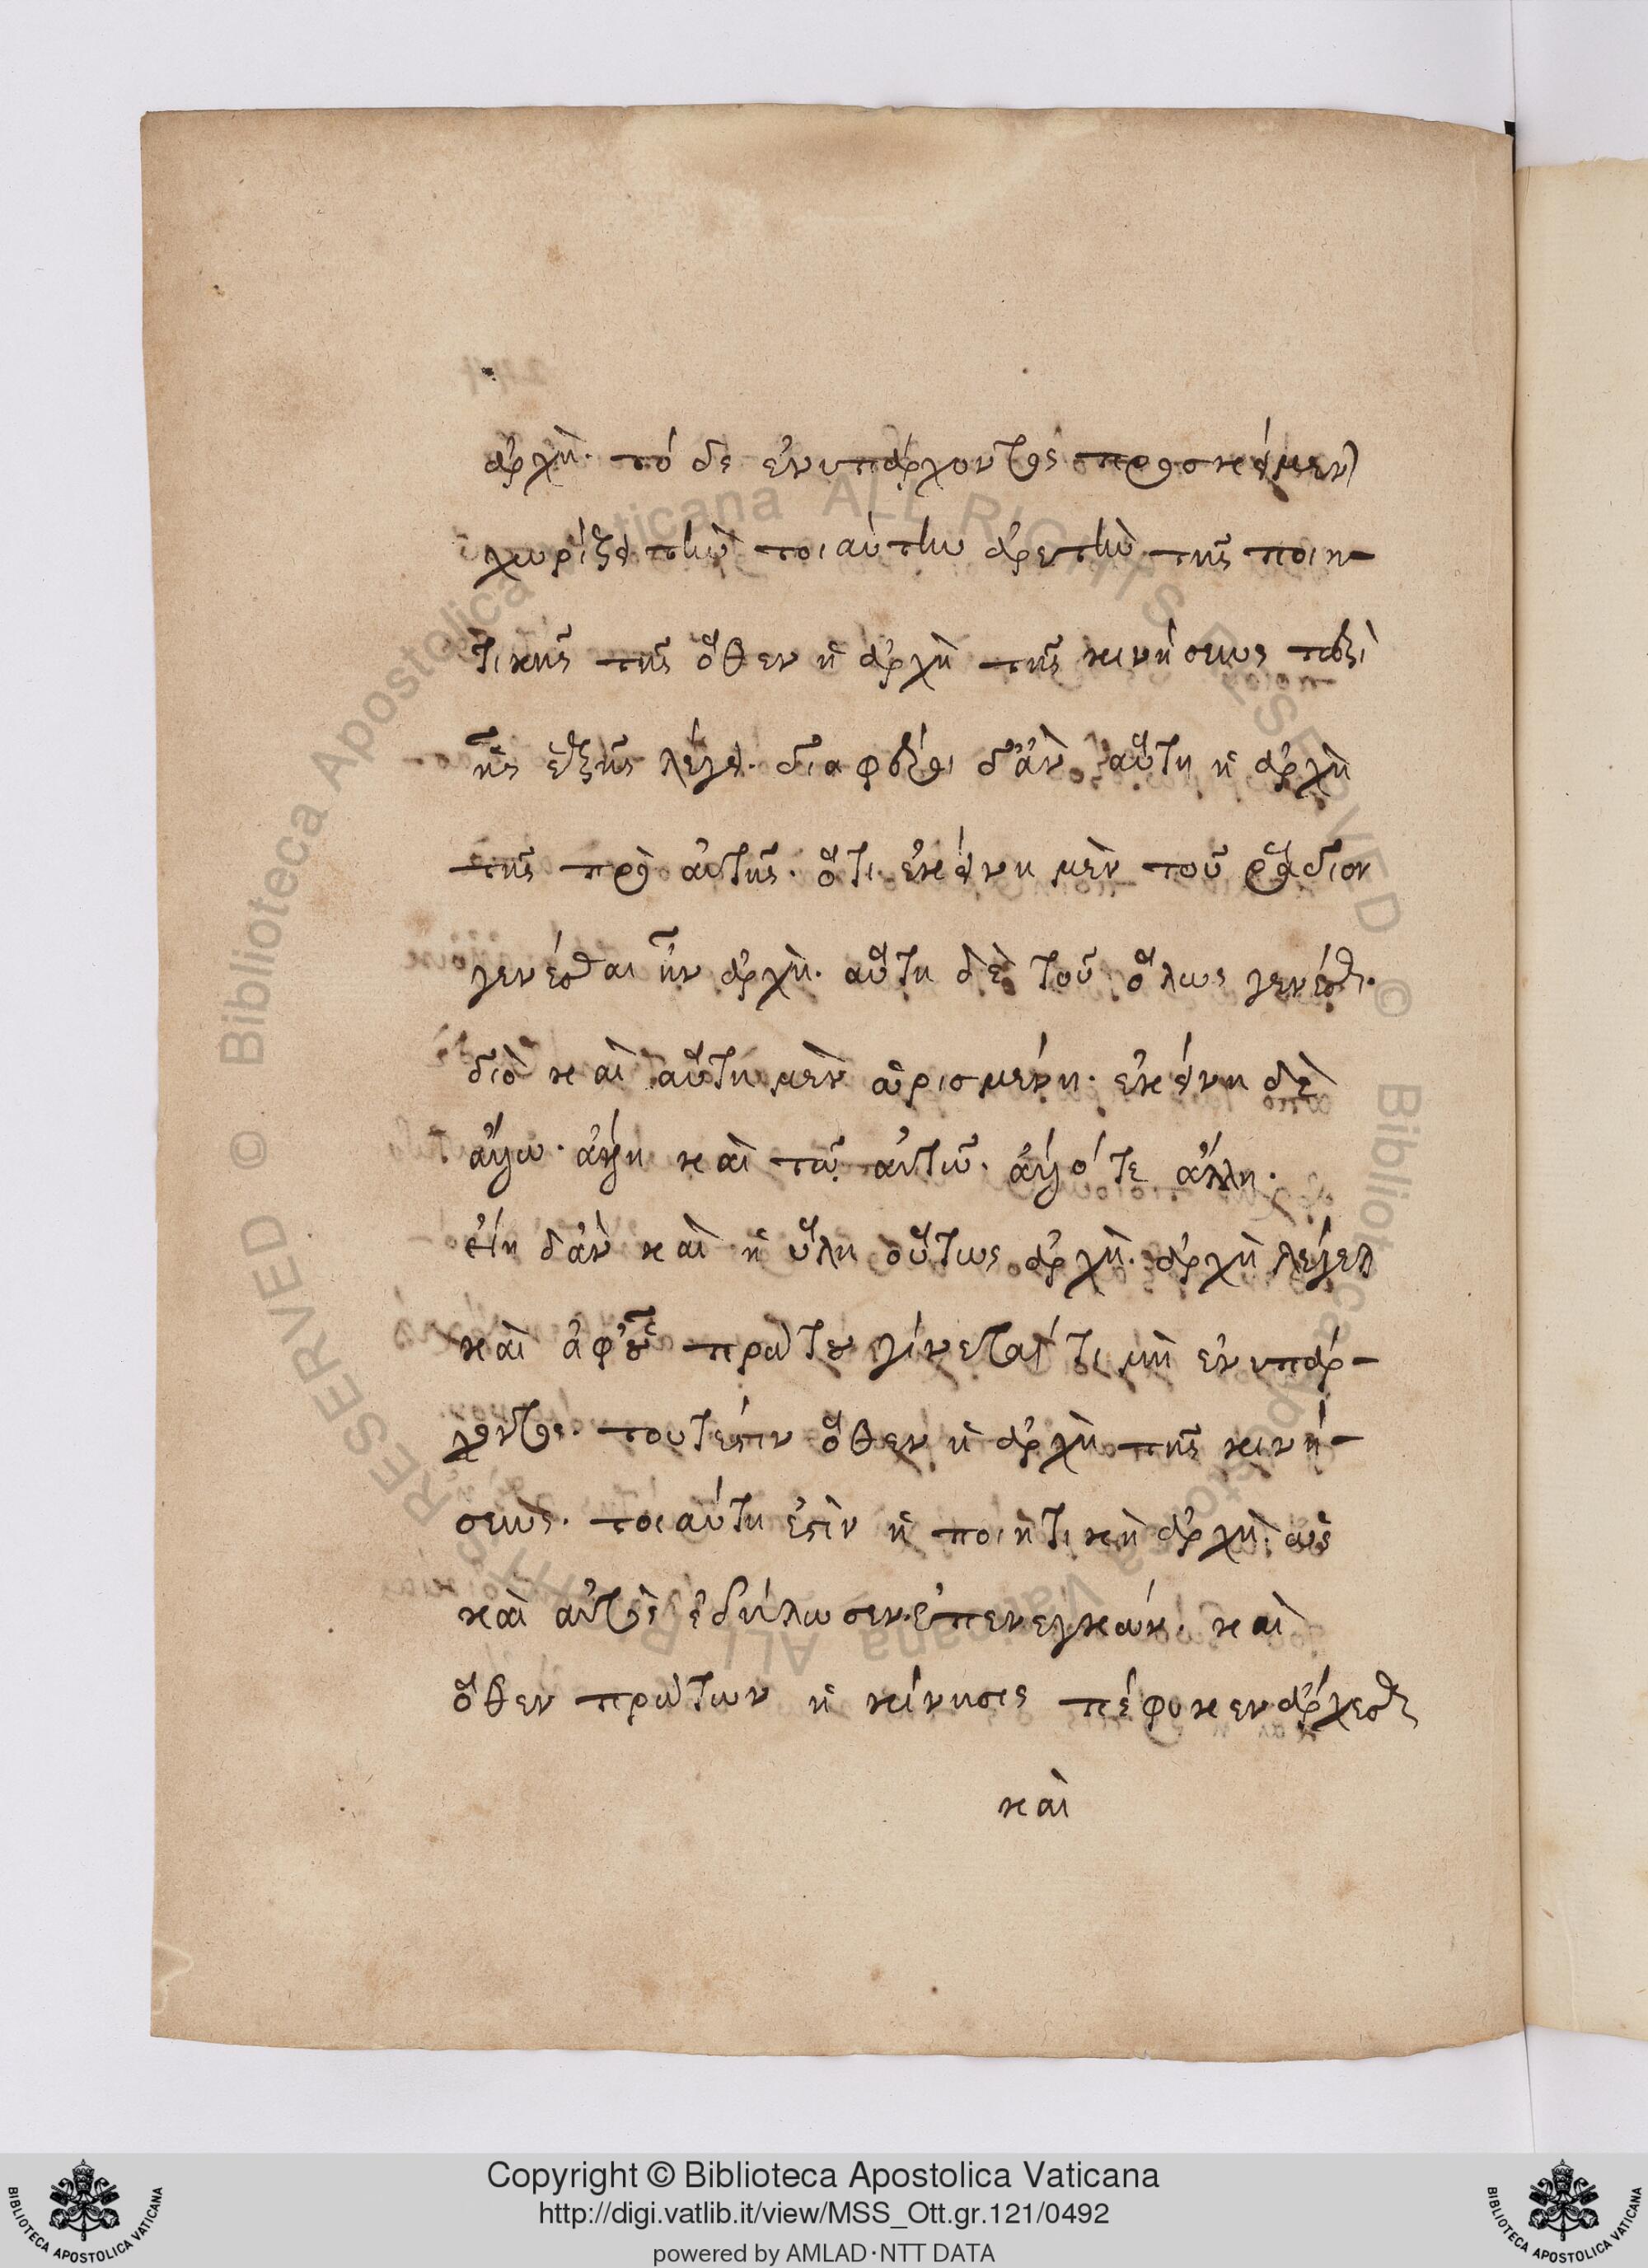 ἀρχὴ. τό δὲ ἐνυπάρχοντος προσκείμενον
χωρίζει τὴν τοιαύτην ἀρετὴν τῆς ποιη-
τικῆς τῆς ὅθεν ἡ ἀρχὴ τῆς κινήσεως περὶ
ἧς ἑξῆς λέγει. διαφέροι δ' ἂν αὕτη ἡ ἀρχὴ
τῆς πρὸ αὐτῆς. ὅτι ἐκείνη μὲν τοῦ ῥᾴδιον
γενέσθαι ἦν ἀρχὴ. αὕτη δὲ τοῦ ὅλως γενέσθαι.
διὸ καὶ αὕτη μὲν ὡρισμένη. ἐκείνη δὲ
ἄλλῳ. ἄλλη καὶ τῷ αὐτῷ. ἄλλοτε ἄλλη.
εἴη δἂν καὶ ἡ ὕλη οὕτως ἀρχὴ. ἀρχὴ λέγεται
καὶ ἀφ' οὗ πρώτου γίνεταί τι μὴ ἐνυπάρ-
χοντος. τουτέστιν ὅθεν ἡ ἀρχὴ τῆς κινή-
σεως. τοιαύτη ἐστὶν ἡ ποιητικὴ ἀρχὴ. ὡς
καὶ αὐτὸς ἐδήλωσεν. ἐπενεγκών. καὶ
ὅθεν πρώτων ἡ κίνησις πέφυκεν ἄρχεσθαι
καὶ
Copyright © Biblioteca Apostolica Vaticana
http://digi.vatlib.it/view/MSS_Ott.gr.121/0492
powered by AMLAD·NTT DATA